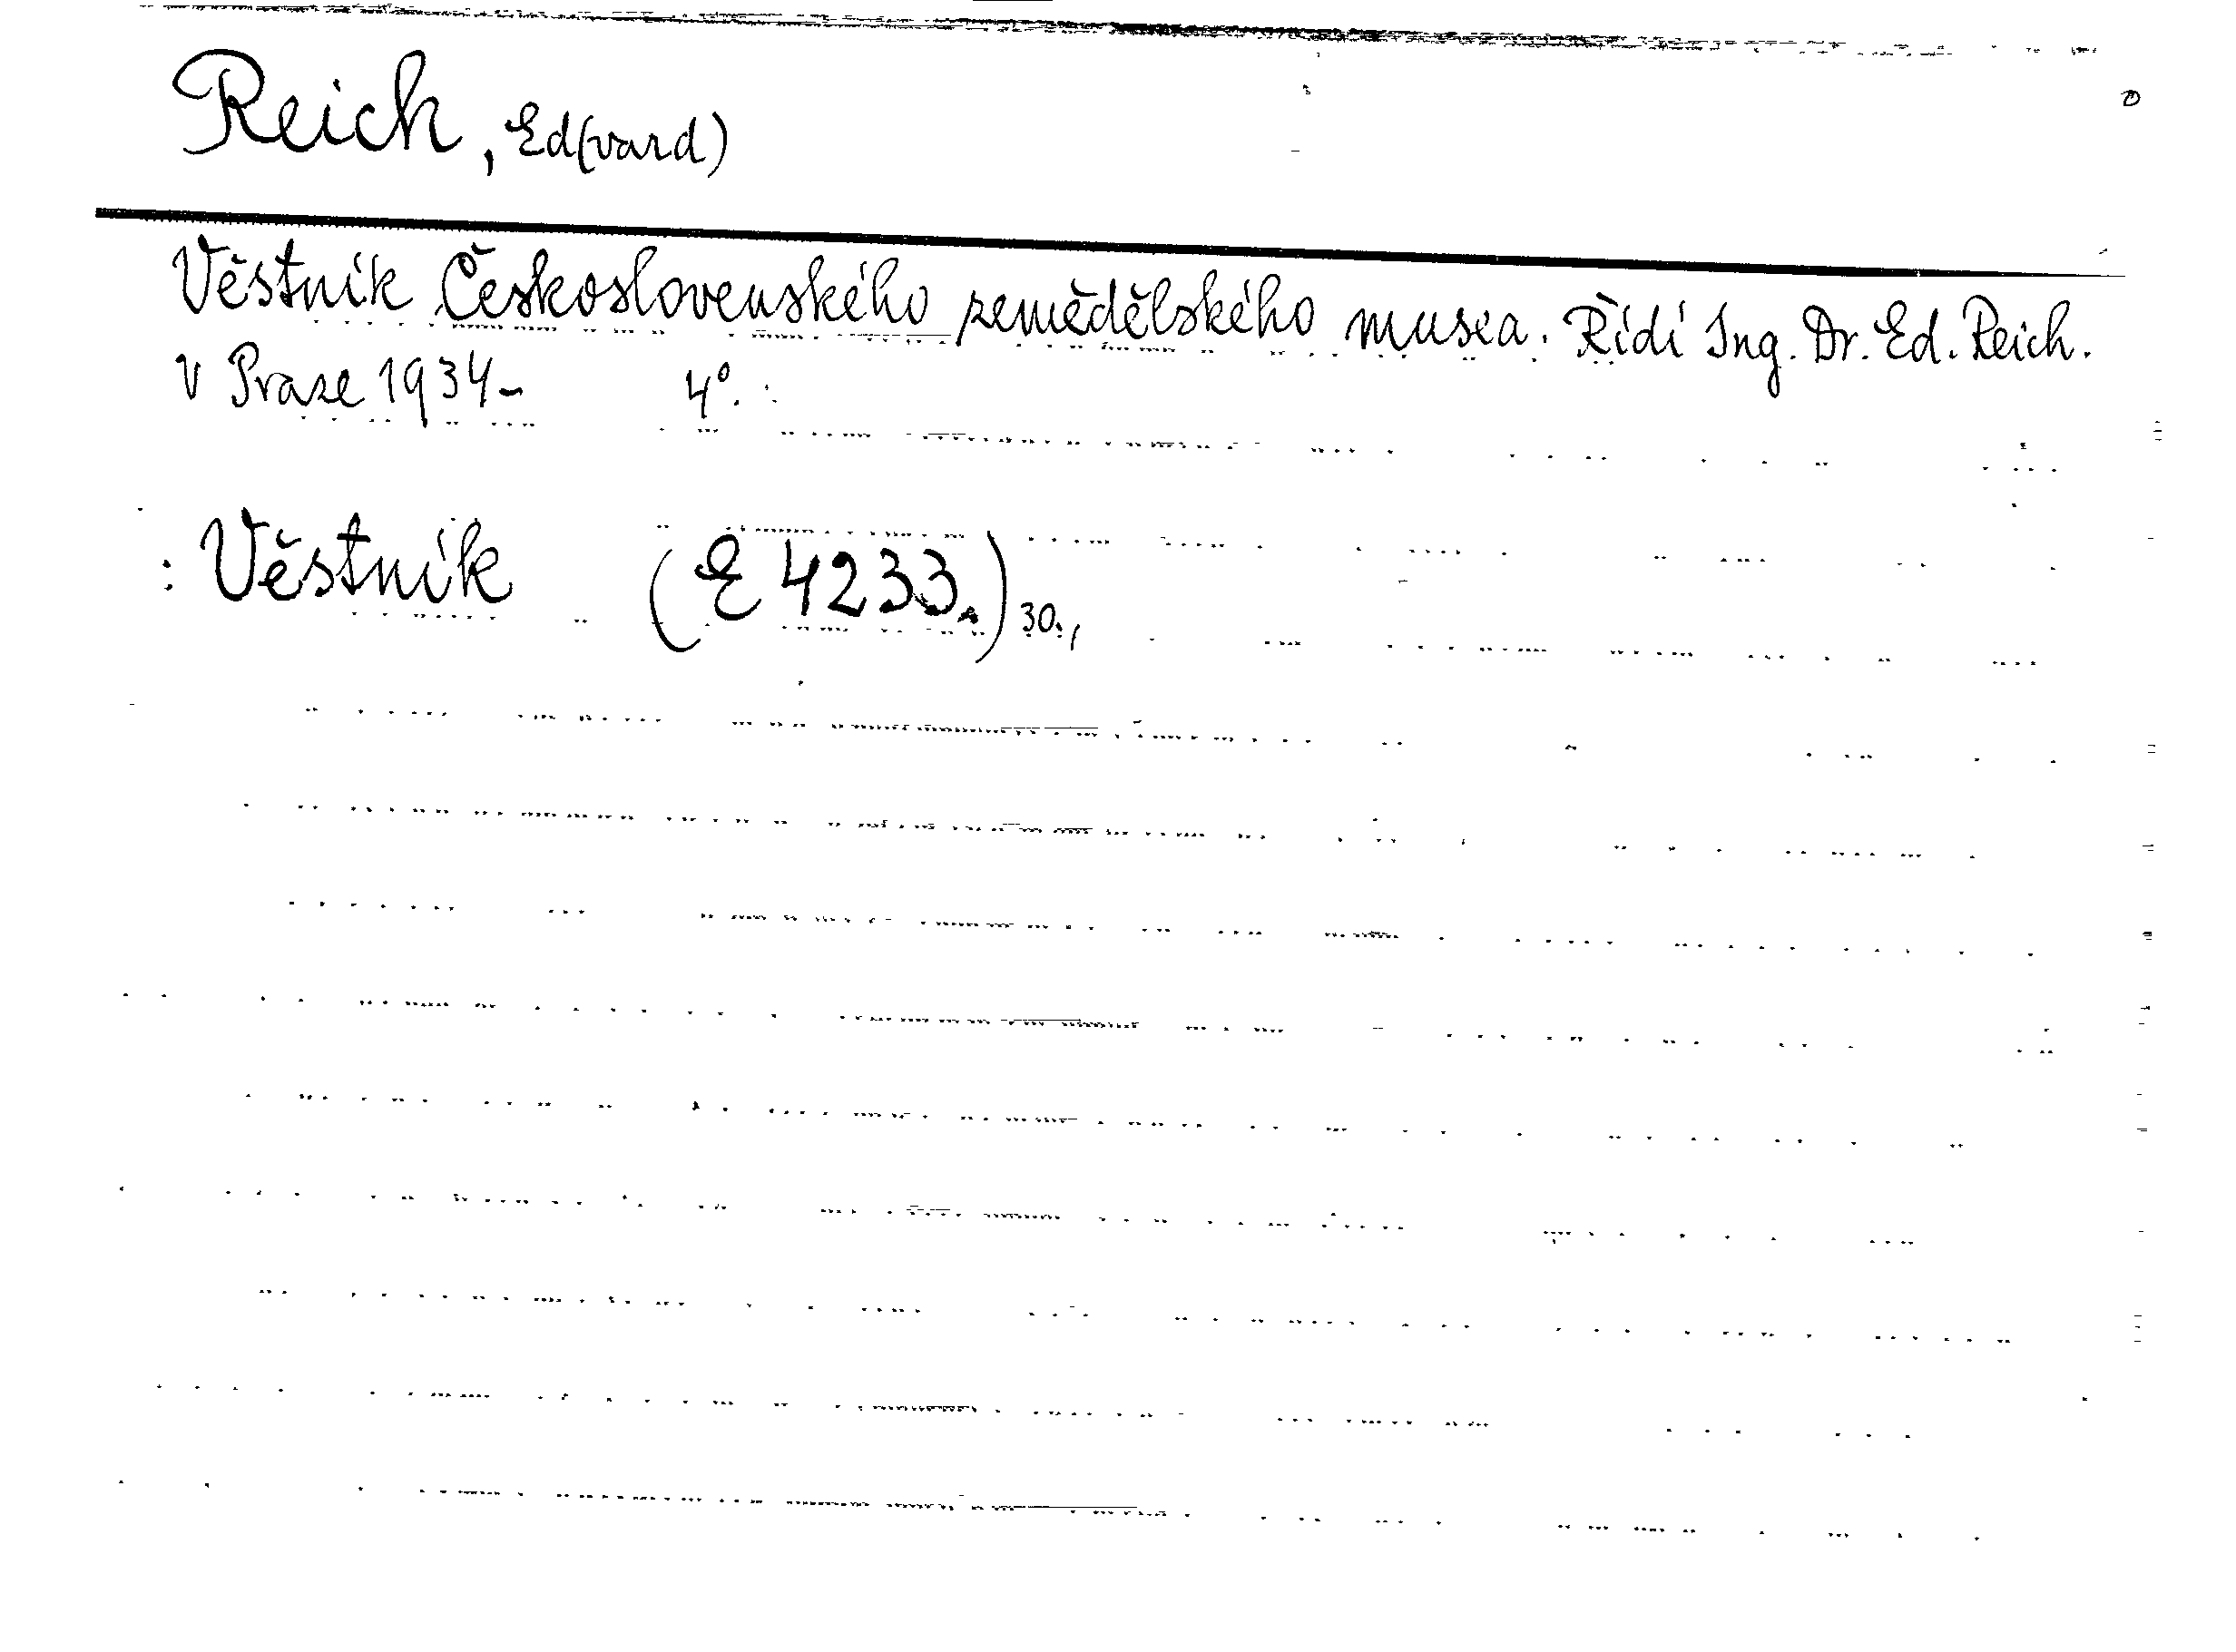 Reich, Ed(vard)
Věstník Československého zemědělského musea. Řídí Ing. Dr. Ed. Reich.
V Praze 1934- 4°.
: Věstník (E 4233.) 30.,